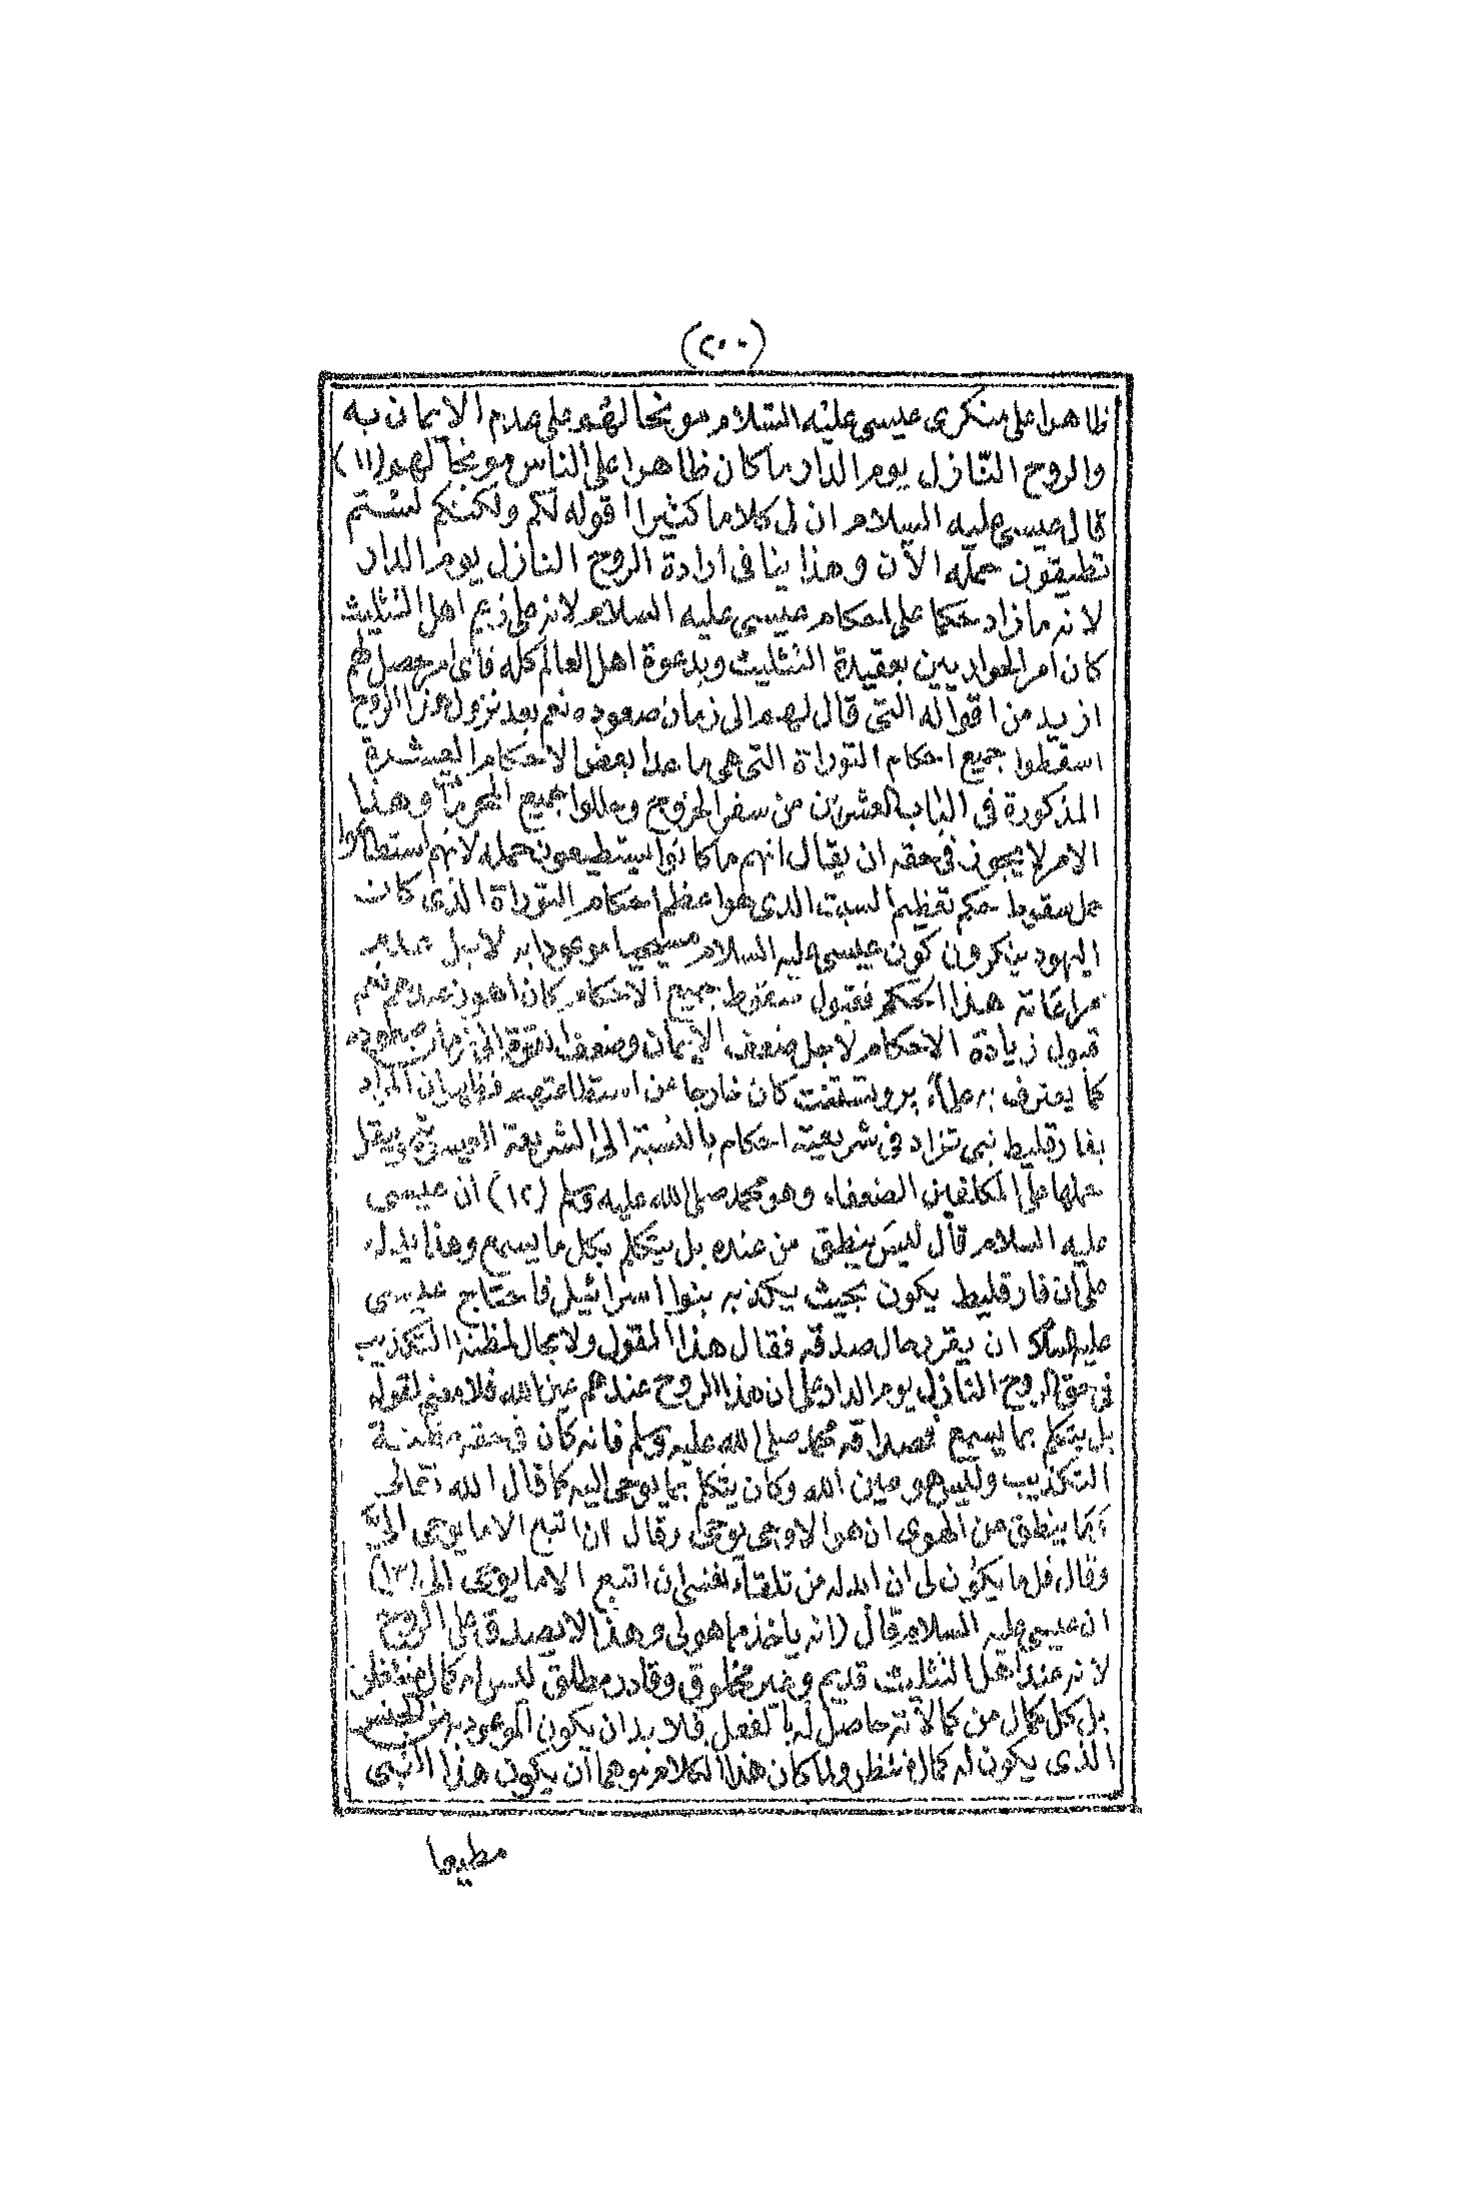 (٢٠٠)
ظاهرا على منكرى عيسى عليه السلام موبخا لهم على عدم الايمان به
والروح النازل يوم الدار ما كان ظاهرا على الناس موبخا لهم (١١)
قال عيسى عليه السلام ان لى كلاما كثيرا اقوله لكم ولكنكم لستم
تطيقون حمله الآن وهذا ينافى ارادة الروح النازل يوم الدار
لانه ما زاد حكما على احكام عيسى عليه السلام لانه على زعم اهل التثليث
كان امر الحواريين بعقيدة التثليث وبدعوة اهل العالم كله فاى امر حصل لهم
ازيد من اقواله التى قال لهم الى زمان صعوده نعم بعد نزول هذا الروح
اسقطوا جميع احكام التوراة التى هى ما عدا بعض الاحكام العشرة
المذكورة فى الباب العشرين من سفر الخروج وحللوا جميع المحرمات وهذا
الامر لا يجوز فى حقه ان يقال انهم ما كانوا يستطيعون حمله لانهم استطاعوا
حمل سقوط حكم تعظيم السبت الذى هو اعظم احكام التوراة الذى كان
اليهود ينكرون كون عيسى عليه السلام مسيحا موعودا به لاجل عدم
مراعاته هذا الحكم فقبول سقوط جميع الاحكام كان اهون عندهم نعم
قبول زيادة الاحكام لاجل ضعف الايمان وضعف القوة الى زمان صعوده
كما يعترف به علماء پروتستنت كان خارجا عن استطاعتهم فظهر ان المراد
بفارقليط نبى تزاد فى شريعته احكام بالنسبة الى الشريعة العيسوية ويثقل
حملها على المكلفين الضعفاء وهو محمد صلى الله عليه وسلم (١٢) ان عيسى
عليه السلام قال ليس ينطق من عنده بل يتكلم بكل ما يسمع وهذا يدل
على ان فارقليط يكون بحيث يكذبه بنوا اسرائيل فاحتاج عيسى
عليه السلام ان يقرر حال صدقه فقال هذا القول ولا مجال لمظنة التكذيب
فى حق الروح النازل يوم الدار على ان هذا الروح عندهم عين الله فلا معنى لقوله
بل يتكلم بما يسمع فمصداقه محمد صلى الله عليه وسلم فانه كان فى حقه مظنة
التكذيب وليس هو عين الله وكان يتكلم بما يوحى اليه كما قال الله تعالى
وما ينطق عن الهوى ان هو الا وحى يوحى وقال ان اتبع الا ما يوحى الى
وقال قل ما يكون لى ان ابدله من تلقاء نفسى ان اتبع الا ما يوحى الى (١٣)
ان عيسى عليه السلام قال انه ياخذ مما هو لى وهذا لا يصدق على الروح
لانه عند اهل التثليث قديم وغير مخلوق وقادر مطلق ليس له كمال منتظر
بل كل كمال من كمالاته حاصل له بالفعل فلا بد ان يكون الموعود به من الجنس
الذى يكون له كمال منتظر ولما كان هذا الكلام موهما ان يكون هذا النبى
مطيعا